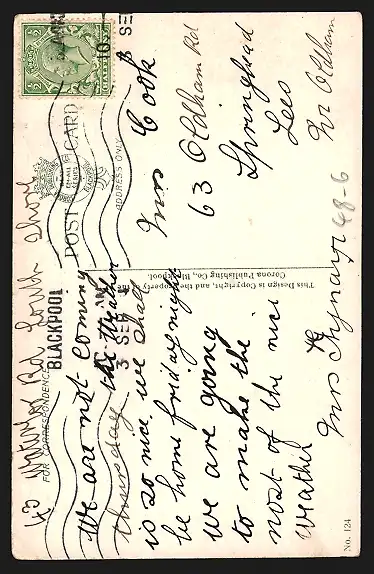 43 Waterloo Rd South Shore
FOR CORRESPONDENCE
We are not coming
thursday the Weather
is so nice we shall
be home friday night
we are going
to make the
most of the nice
Weather
Mrs
48-6
No. 124
BLACKPOOL
3 SEP
10
SE
POST CARD
ADDRESS ONLY
This Design is Copyright, and the Property of the
Corona Publishing Co., Blackpool.
Mrs Cook
63 Oldham Rd
Springhead
Lees
Nr Oldham